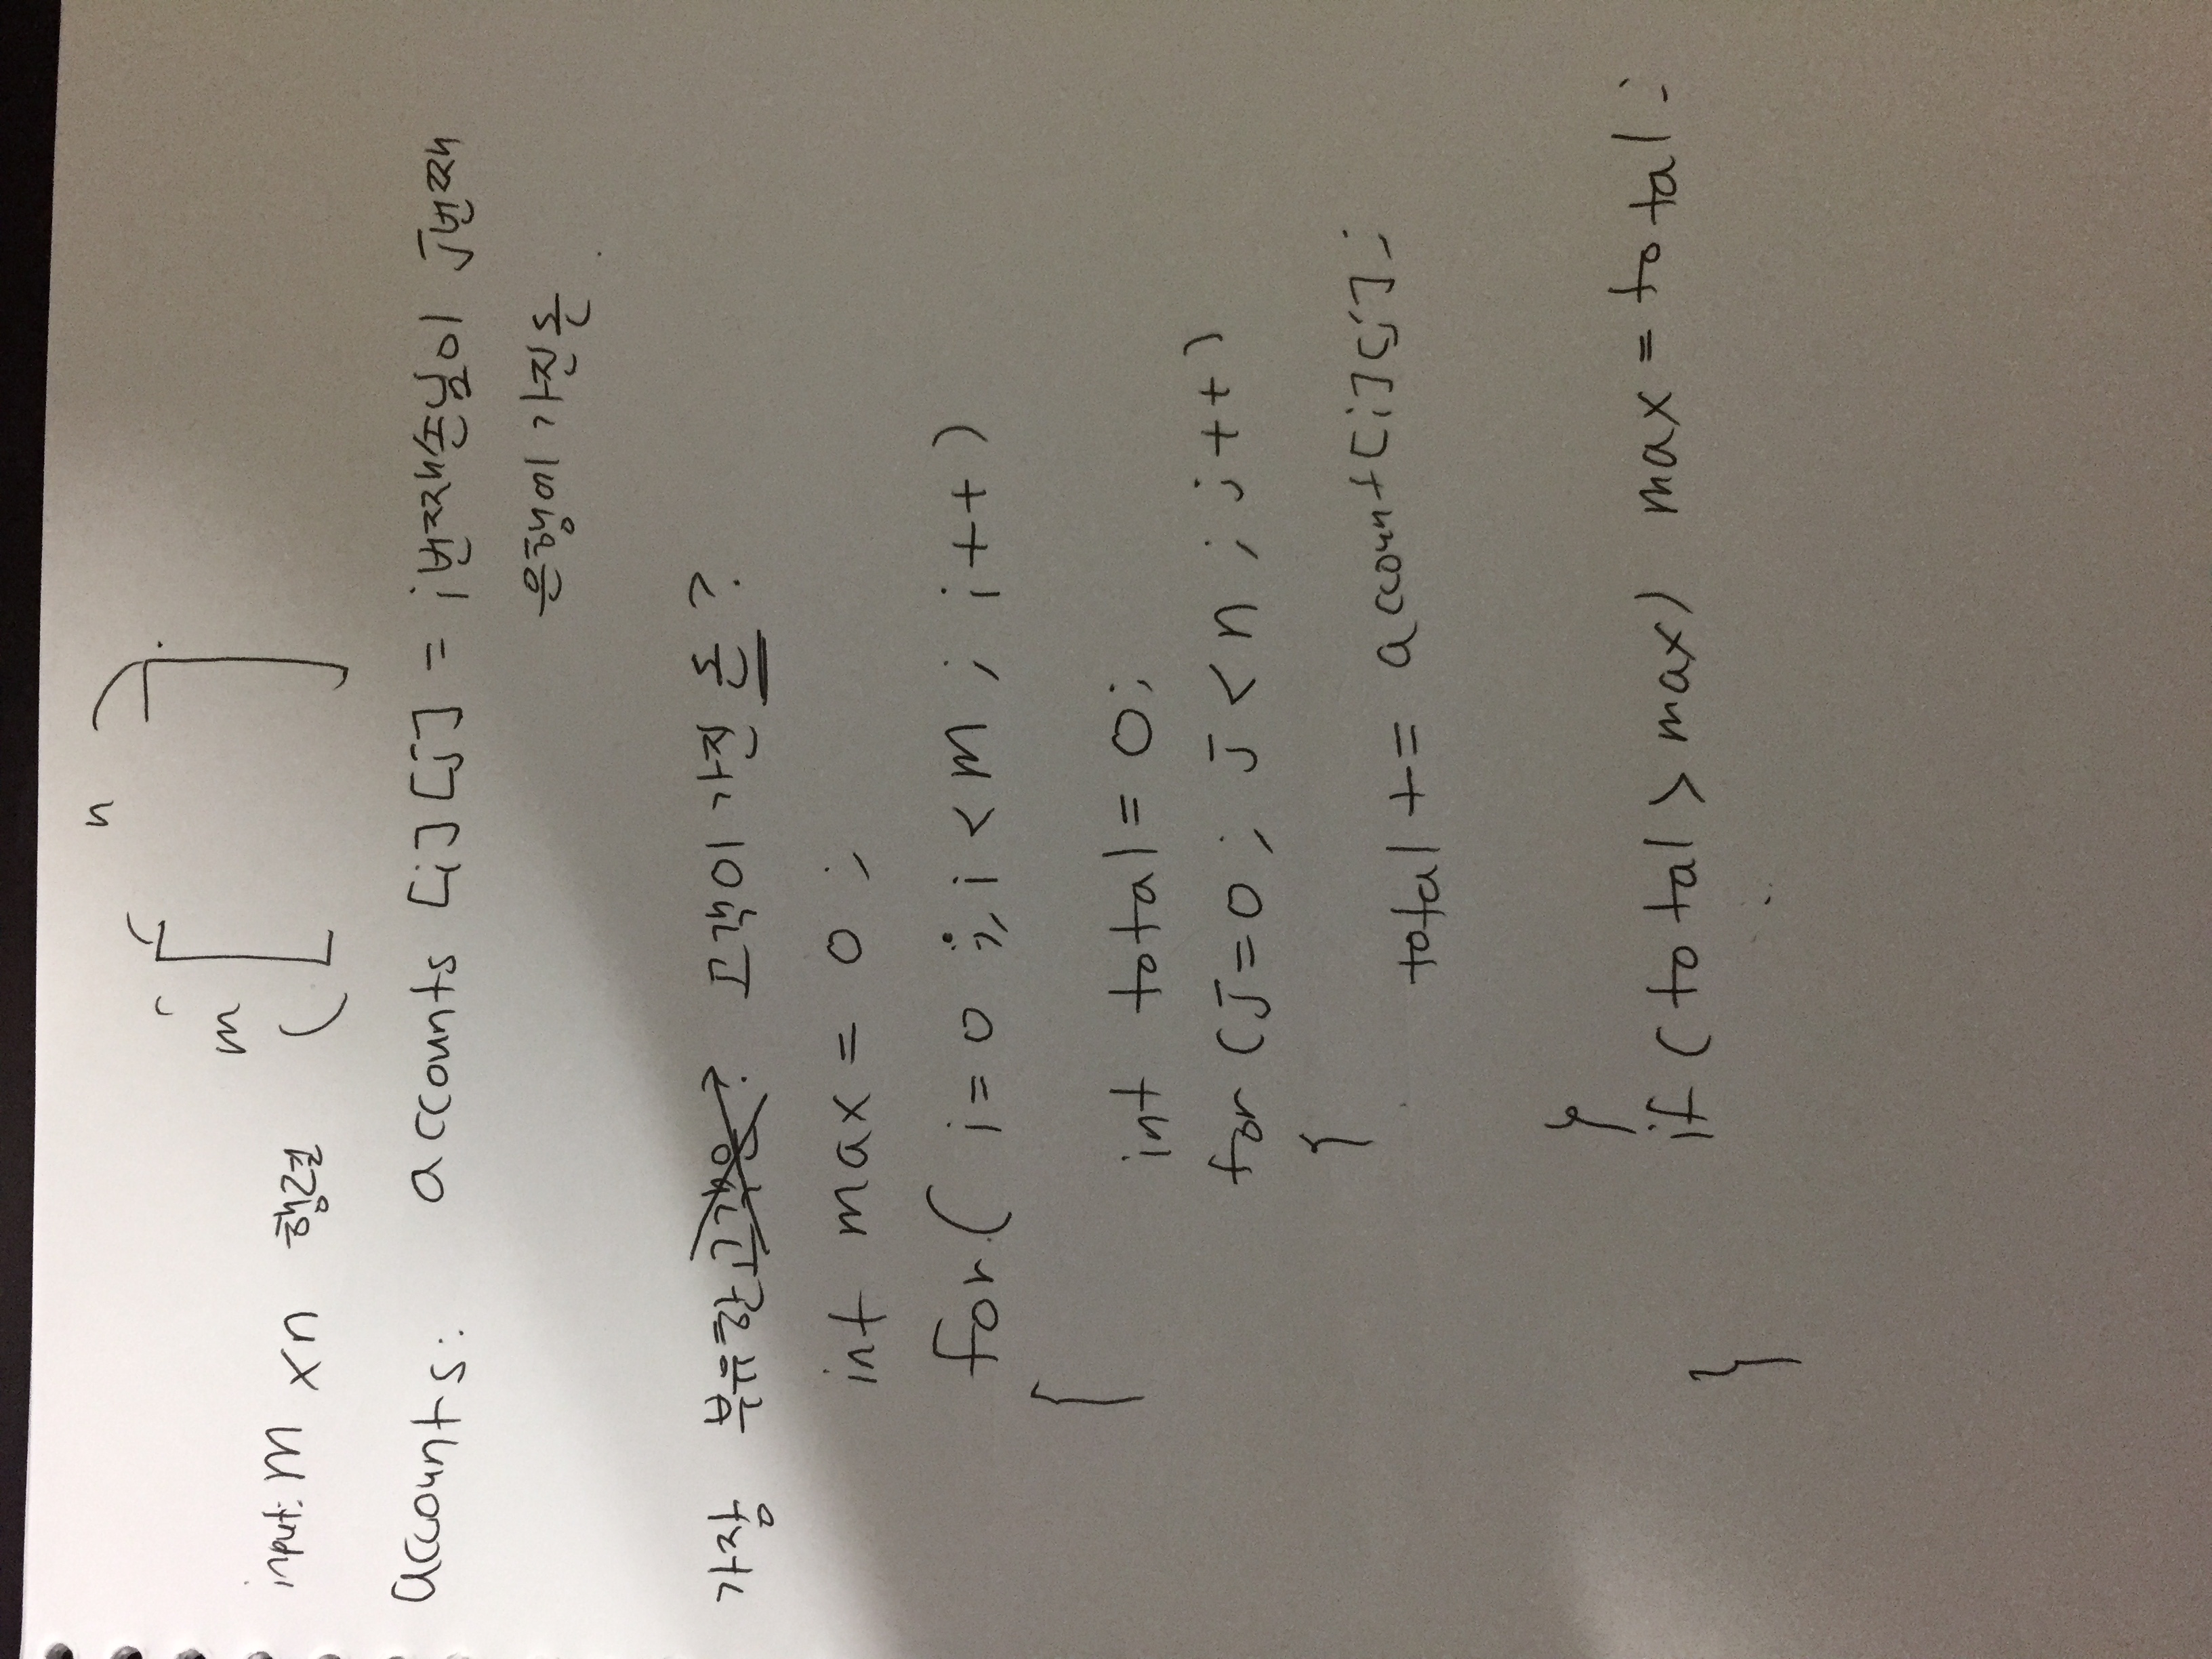 n
m
input: m x n 행렬
accounts: accounts [i][j] = i번째손님이 j번째
은행에 가진돈
가장 부유한 고객은? 고객이 가진 돈?
int max = 0 ;
for( i=0 ; i < m ; i++ )
{
int total = 0;
for (j=0 ; j < n ; j++)
{
total += account[i][j] ;
}
if ( total > max) max = total ;
}